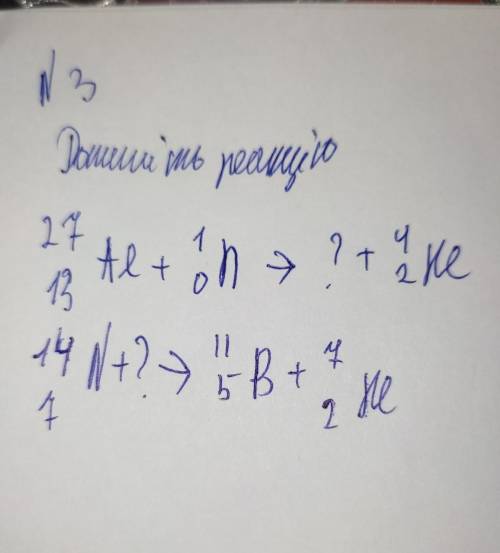 N 3
Допишіть реакцію
²⁷₁₃Al + ¹₀n → ? + ⁴₂He
¹⁴₇N + ? → ¹¹₅B + ⁷₂He